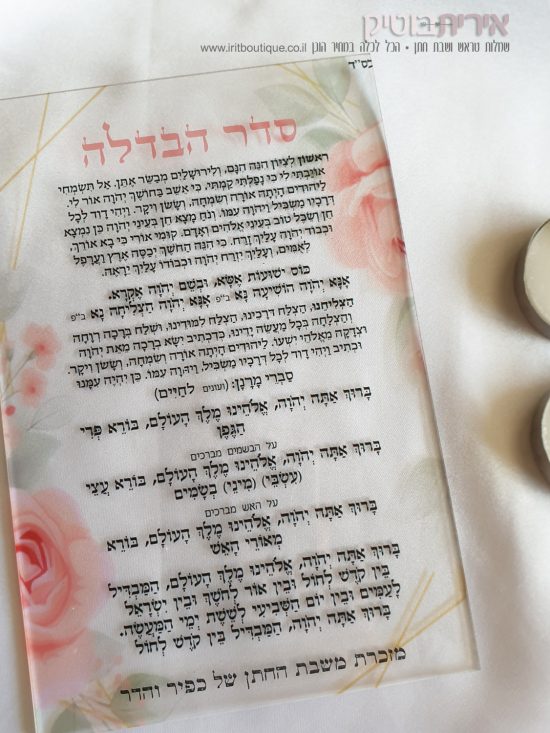 אירית בוטיק
שמלות טראש ושבת חתן • הכל לכלה במחיר הוגן www.iritboutique.co.il
בס"ד
סדר הבדלה
ראשון לציון הנה הנם, ולירושלים מבשר אתן. אל תשמחי
אויבתי לי כי נפלתי קמתי, כי אשב בחושך יהוה אור לי.
ליהודים היתה אורה ושמחה, ששון ויקר. ויהי דוד לכל
דרכיו משכיל ויהוה עמו. ונח מצא חן בעיני יהוה כן נמצא
חן ושכל טוב בעיני אלהים ואדם. קומי אורי כי בא אורך,
וכבוד יהוה עליך זרח. כי הנה החשך יכסה ארץ וערפל
לאומים, ועליך יזרח יהוה וכבודו עליך יראה.
כוס ישועות אשא, ובשם יהוה אקרא.
אנא יהוה הושיעה נא ב"פ אנא יהוה הצליחה נא ב"פ
הצליחנו, הצלח דרכינו, הצלח למודינו, ושלח ברכה רוחה
והצלחה בכל מעשה ידינו, כדכתיב ישא ברכה מאת יהוה
וצדקה מאלהי ישעו. ליהודים היתה אורה ושמחה, ששון ויקר.
וכתיב ויהי דוד לכל דרכיו משכיל, ויהוה עמו. כן יהיה עמנו
סברי מרנן: (ועונים לחיים)
ברוך אתה יהוה, אלהינו מלך העולם, בורא פרי
הגפן
על הבשמים מברכים
ברוך אתה יהוה, אלהינו מלך העולם, בורא עצי
(עשבי) (מיני) בשמים
על האש מברכים
ברוך אתה יהוה, אלהינו מלך העולם, בורא
מאורי האש
ברוך אתה יהוה, אלהינו מלך העולם, המבדיל
בין קדש לחול ובין אור לחשך ובין ישראל
לעמים ובין יום השביעי לששת ימי המעשה.
ברוך אתה יהוה, המבדיל בין קדש לחול
מזכרת משבת החתן של כפיר והדר